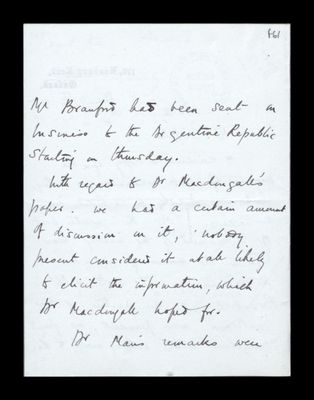 198
Mr Branford has been sent on
business to the Argentine Republic
starting on Thursday.
With regard to Dr Macdougall's
paper. we had a certain amount
of discussion on it, nobody
present considered it at all likely
to elicit the information, which
Dr Macdougall hoped for.
Dr Man's remarks were